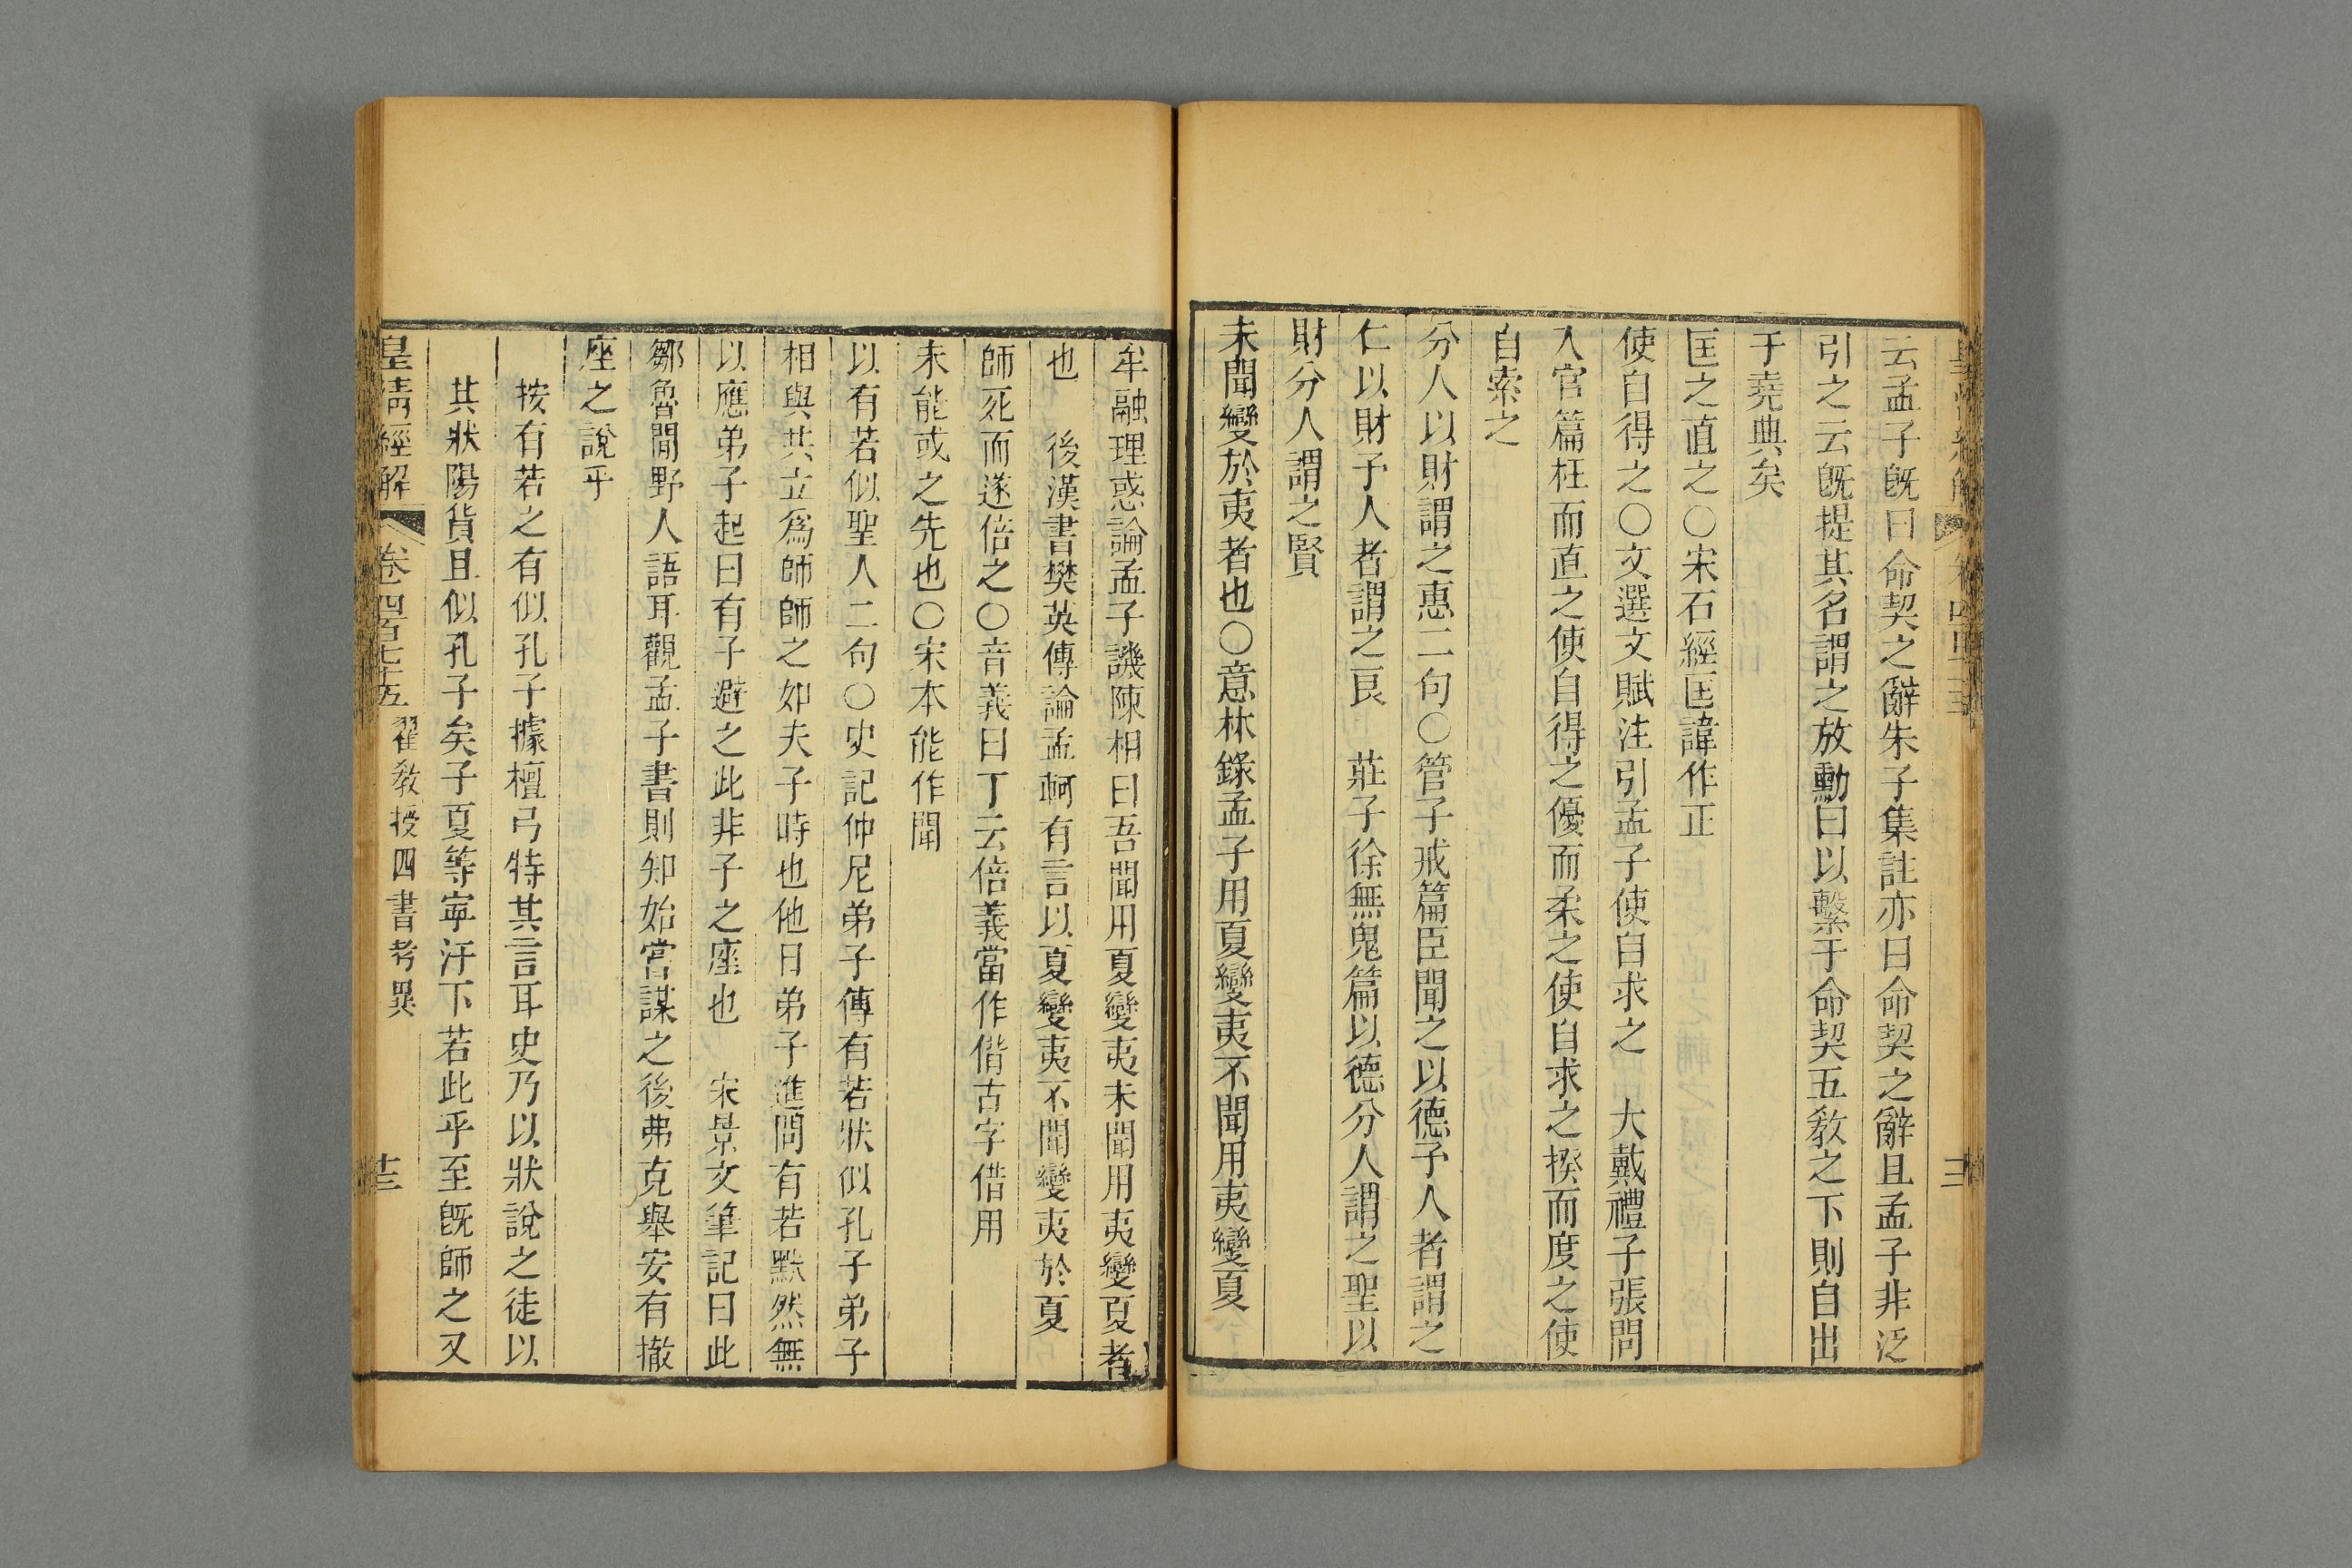 云孟子旣曰命契之辭朱子集註亦曰命契之辭且孟子非泛
引之云旣提其名謂之放勳曰以繫于命契五敎之下則自出
于堯典矣
匡之直之〇宋石經匡諱作正
使自得之〇文選文賦注引孟子使自求之　大戴禮子張問
入官篇枉而直之使自得之優而柔之使自求之揆而度之使
自索之
分人以財謂之惠二句〇管子戒篇臣聞之以德予人者謂之
仁以財予人者謂之良　莊子徐無鬼篇以德分人謂之聖以
財分人謂之賢
未聞變於夷者也〇意林錄孟子用夏變夷不聞用夷變夏
牟融理惑論孟子譏陳相曰吾聞用夏變夷未聞用夷變夏者
也　後漢書樊英傳論孟軻有言以夏變夷不聞變夷於夏
師死而遂倍之〇音義曰丁云倍義當作偝古字借用
未能或之先也〇宋本能作聞
以有若似聖人二句〇史記仲尼弟子傳有若狀似孔子弟子
相與共立爲師師之如夫子時也他日弟子進問有若默然無
以應弟子起曰有子避之此非子之座也　宋景文筆記曰此
鄒魯閒野人語耳觀孟子書則知始嘗謀之後弗克舉安有撤
座之說乎
按有若之有似孔子據檀弓特其言耳史乃以狀說之徒以
其狀陽貨且似孔子矣子夏等寧汙下若此乎至旣師之又
皇淸經解　卷四百七十五　翟敎授四書考異　十三